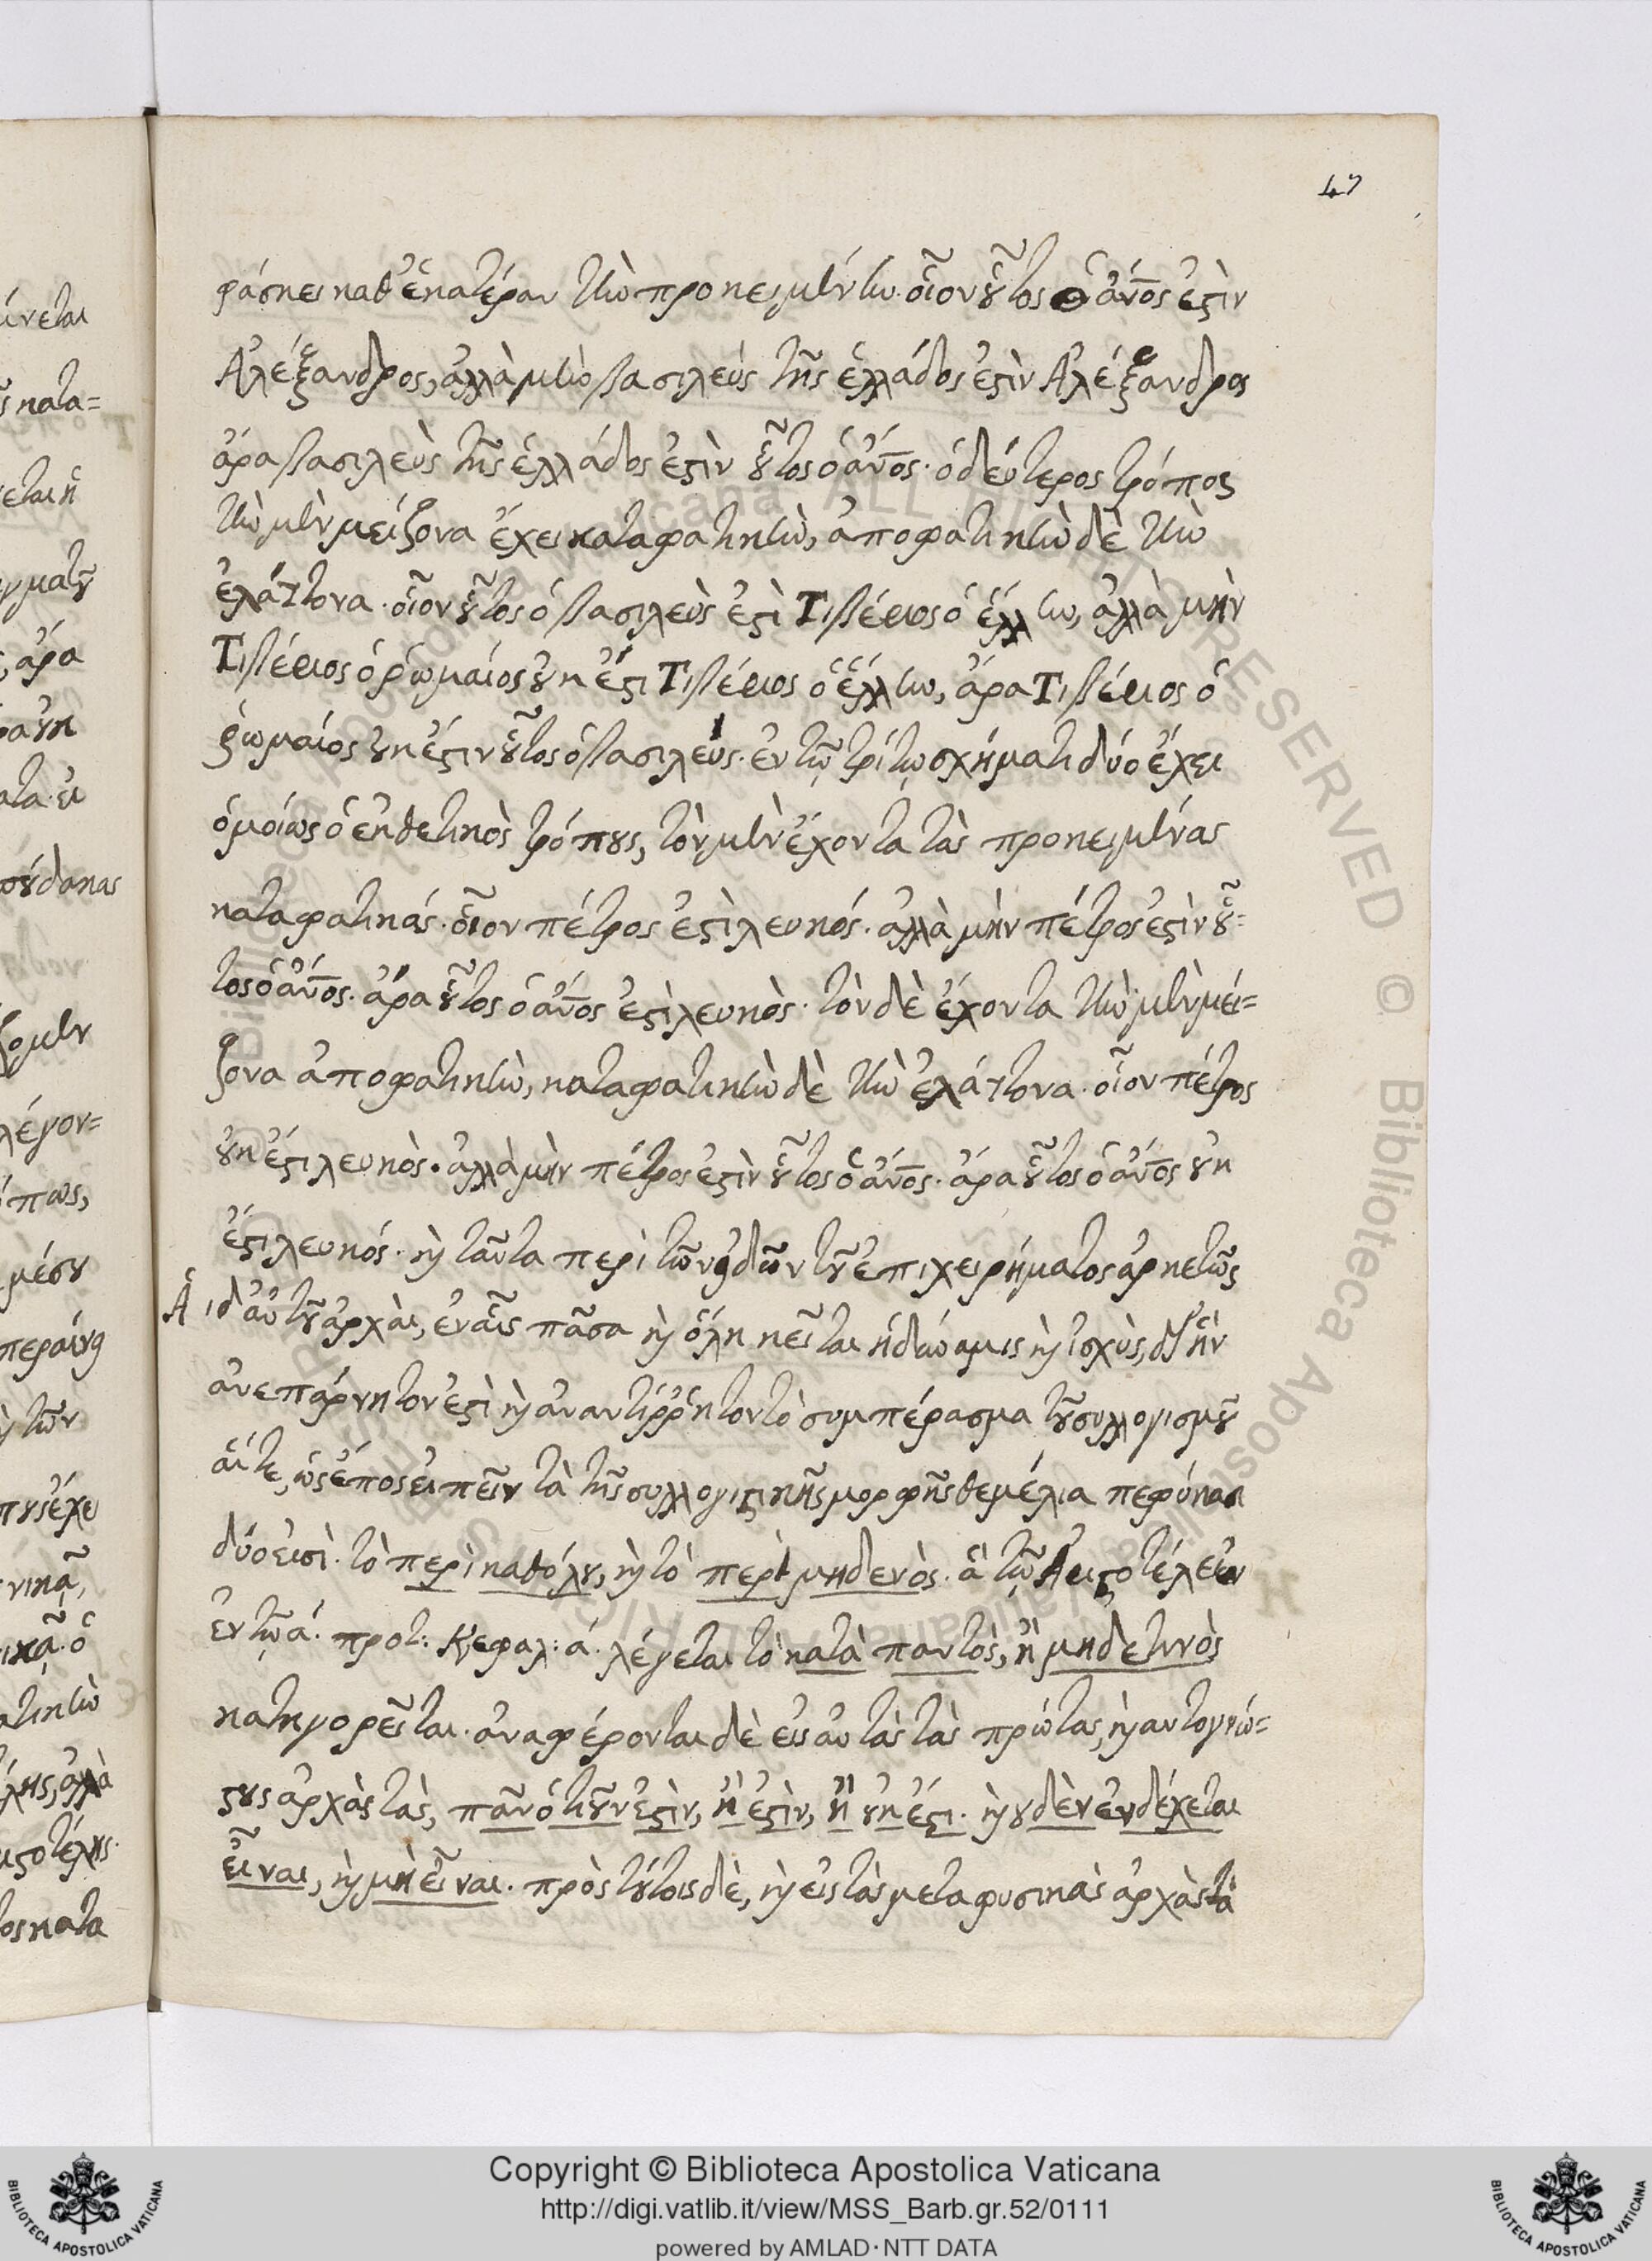 47
φάσκει καθ' ἑκατέραν τὴν προκειμένην. οἷον οὗτος ὁ ἄνος ἐστὶν
Ἀλέξανδρος, ἀλλὰ μὴν βασιλεὺς τῆς ἑλλάδος ἐστὶν Ἀλέξανδρος
ἄρα βασιλεὺς τῆς ἑλλάδος ἐστὶν οὗτος ὁ ἄνος. ὁ δεύτερος τρόπος
τὴν μὲν μείζονα ἔχει καταφατικὴν, ἀποφατικὴν δὲ τὴν
ἐλάττονα. οἷον οὗτος ὁ βασιλεὺς ἐστὶ Τιβέριος ὁ ἕλλην, ἀλλὰ μὴν
Τιβέριος ὁ ῥωμαίος οὐκ ἔστι Τιβέριος ὁ ἕλλην, ἄρα Τιβέριος ὁ
ῥωμαίος οὐκ ἔστιν οὗτος ὁ βασιλεύς. ἐν τῷ τρίτῳ σχήματι δύο ἔχει
ὁμοίως ὁ ἐκθετικὸς τρόπους, τὸν μὲν ἔχοντα τὰς προκειμένας
καταφατικάς. οἷον πέτρος ἐστὶ λευκός. ἀλλὰ μὴν πέτρος ἐστὶν οὗ=
τος ὁ ἄνος. ἄρα οὗτος ὁ ἄνος ἐστὶ λευκὸς. τὸν δὲ ἔχοντα τὴν μὲν μεί=
ζονα ἀποφατικὴν, καταφατικὴν δὲ τὴν ἐλάττονα. οἷον πέτρος
οὐκ ἔστι λευκὸς. ἀλλὰ μὴν πέτρος ἐστὶν οὗτος ὁ ἄνος. ἄρα οὗτος ὁ ἄνος οὐκ
ἔστι λευκός. καὶ ταῦτα περὶ τῶν εἰδῶν τοῦ ἐπιχειρήματος ἀρκετῶς
Ἁι δ' αὐτοῦ ἀρχὰι, ἐν αἷς πᾶσα καὶ ὅλη κεῖται ἡ δύναμις καὶ ἰσχὺς, δι' ἣν
ἀνεπάρνητον ἐστὶ καὶ ἀναντίῤῥητον τὸ συμπέρασμα τοῦ συλλογισμοῦ
αἵτε, ὡς ἔπος εἰπεῖν τὰ τῆς συλλογιστικῆς μορφῆς θεμέλια πεφύκασι
δύο εἰσὶ. τὸ περὶ καθόλου, καὶ τὸ περὶ μηδενὸς. ἃ τῷ Ἀριστοτέλει
ἐν τῷ ά. προτ: Κεφαλ: ά. λέγεται τὸ κατὰ παντὸς, ἢ μηδετινὸς
κατηγορεῖται. ἀναφέρονται δὲ εἰς αὐτὰς τὰς πρώτας, καὶ αυτογνώ=
στους ἀρχὰς τὰς, πᾶν ὁτιοῦν ἐστὶν, ἢ ἐστὶν, ἢ οὐκ ἔστι. καὶ ουδὲν ἐνδέχεται
εἶναι, καὶ μὴ εἶναι. πρὸς τούτοις δὲ, καὶ εἰς τὰς μεταφυσικὰς ἀρχὰς τὰ
Copyright © Biblioteca Apostolica Vaticana
http://digi.vatlib.it/view/MSS_Barb.gr.52/0111
powered by AMLAD·NTT DATA